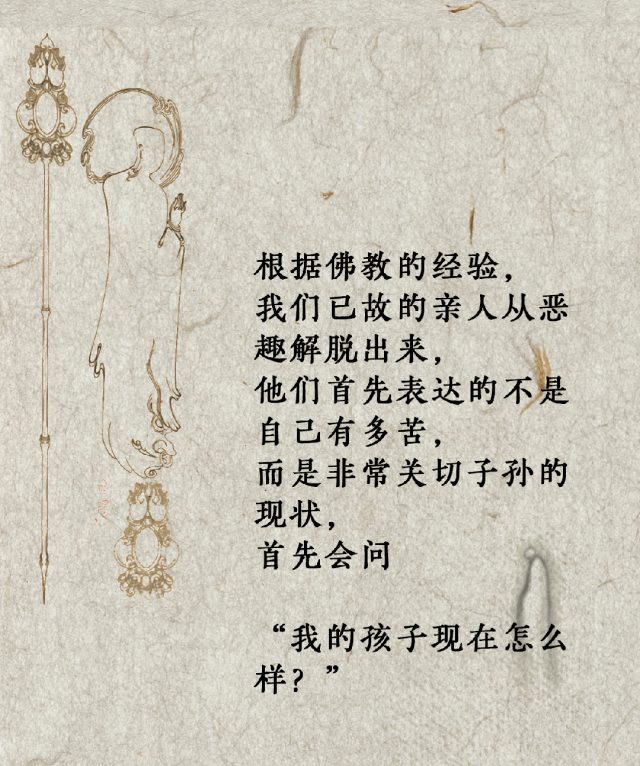 根据佛教的经验，
我们已故的亲人从恶
趣解脱出来，
他们首先表达的不是
自己有多苦，
而是非常关切子孙的
现状，
首先会问
“我的孩子现在怎么
样？”